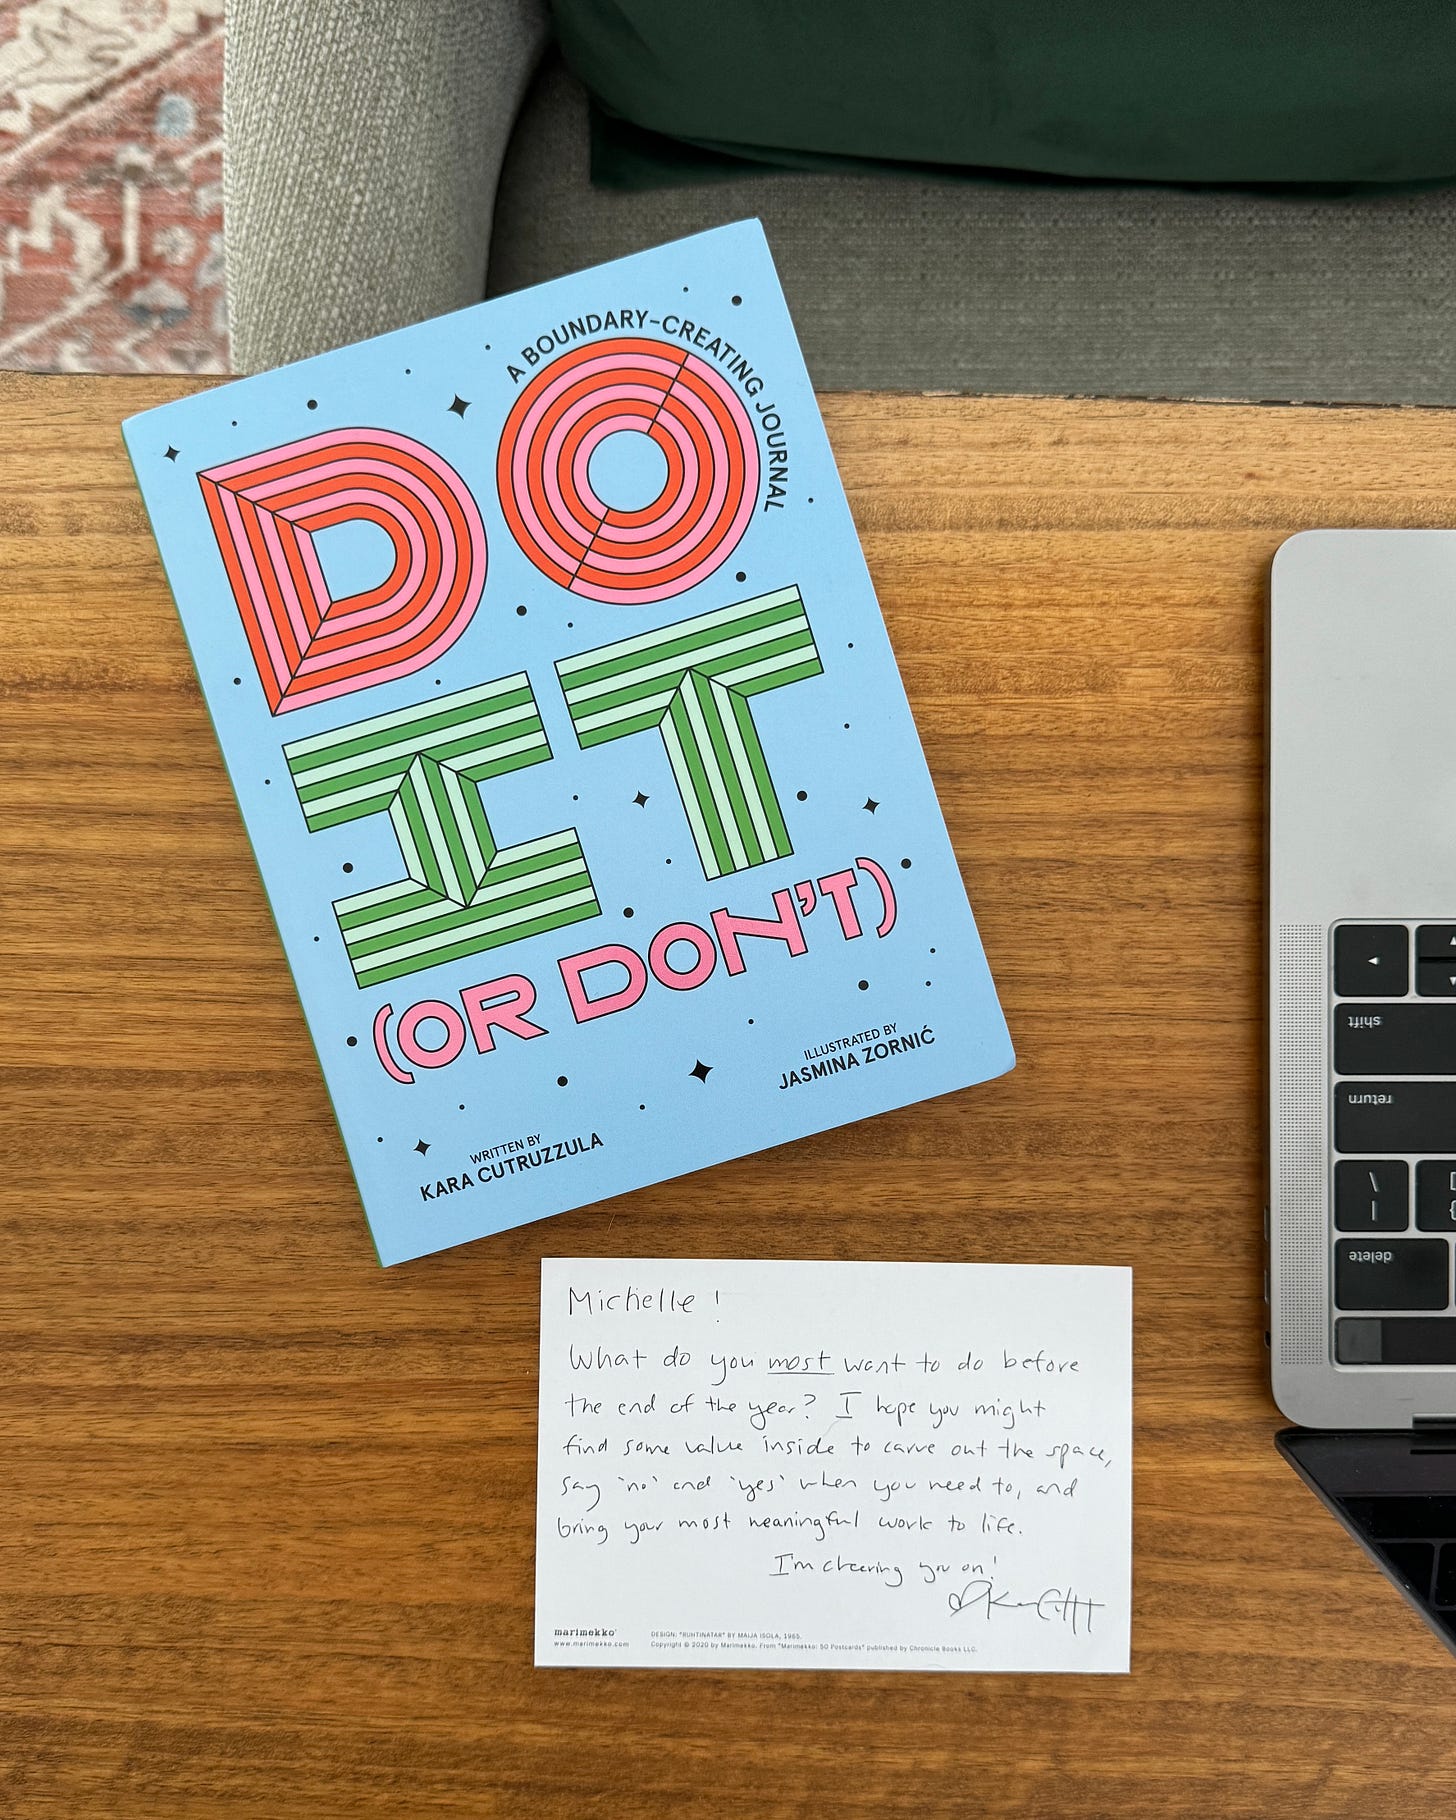 A BOUNDARY-CREATING JOURNAL
DO
IT
(OR DON'T)
WRITTEN BY
KARA CUTRUZZULA
ILLUSTRATED BY
JASMINA ZORNIĆ
shift
return
\
|
delete
Michelle!
What do you most want to do before
the end of the year? I hope you might
find some value inside to carve out the space,
say 'no' and 'yes' when you need to, and
bring your most meaningful work to life.
I'm cheering you on!
marimekko®
www.marimekko.com
DESIGN: "RUHTINATAR" BY MAIJA ISOLA, 1965.
Copyright © 2020 by Marimekko. From "Marimekko: 50 Postcards" published by Chronicle Books LLC.